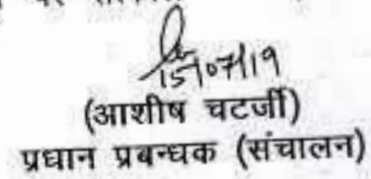 पर
15/07/19
(आशीष चटर्जी)
प्रधान प्रबन्धक (संचालन)